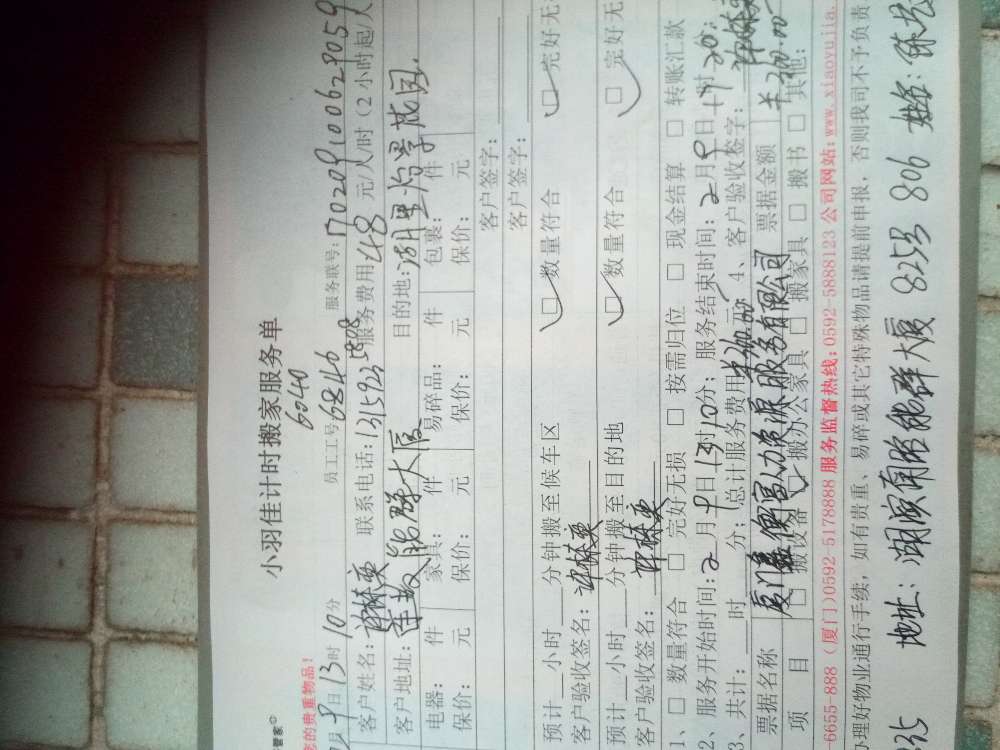 管家
小羽佳计时搬家服务单
6040
您的贵重物品!
员工工号6846 服务联号:170209100629059
2月9日13时10分
客户姓名: 联系电话:13159235808 服务费用48元/人/时(2小时起/人
客户地址: 能群大厦 目的地:湖里
电器: 件 家具: 件 易碎品: 件 包裹: 件
保价: 元 保价: 元 保价: 元 保价: 元
客户签字:
客户签字:
预计 小时 分钟搬至候车区 □数量符合 □完好无
客户验收签名:
预计 小时 分钟搬至目的地 □数量符合 □完好无
客户验收签名:
1、□数量符合 □完好无损 □按需归位 □现金结算 □转账汇款
2、服务开始时间:2月9日13时10分; 服务结束时间:2月9日17时20分
3、共计: 时 分; 总计服务费用 元 4、客户验收签字:
票据名称 厦门 人力资源服务有限公司 票据金额
项目 □搬设备 □搬办公家具 □搬家具 □搬书 □其他:
6655-888 (厦门)0592-5178888 服务监督热线:0592-5888123 公司网站:www.xiaoyujia.
办理好物业通行手续,如有贵重、易碎或其它特殊物品请提前申报,否则我司不予负责
地址: 能群大厦 825号 806 姓名: